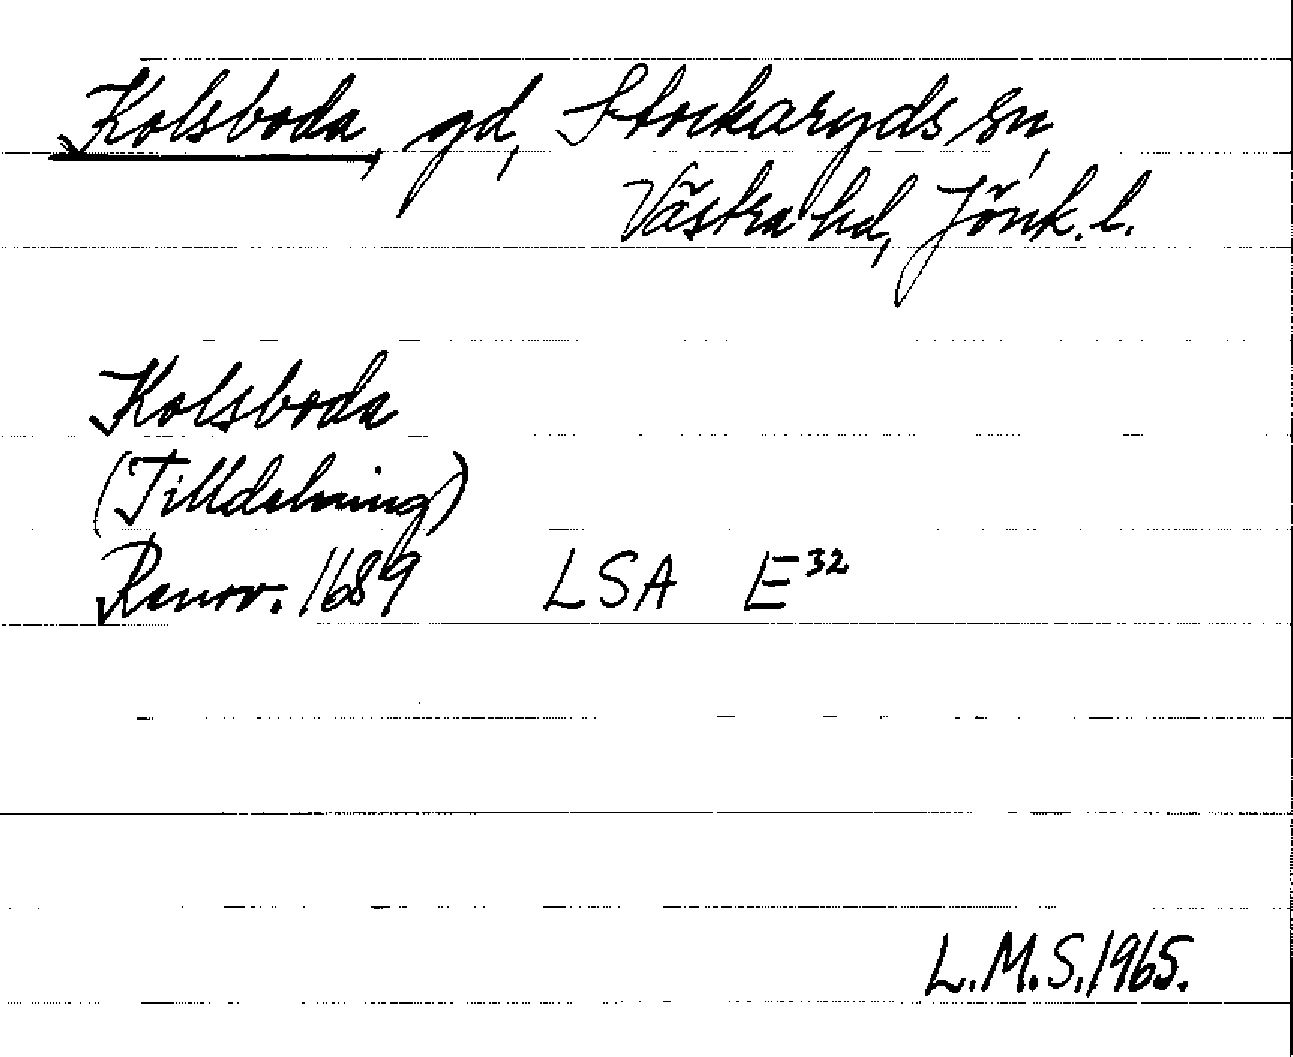 Kolsboda, gd, Stockaryds sn,
Västra hd, Jönk. l.
Kolsboda
(Tilldelning)
Renov. 1689 LSA E³²
L.M.S. 1965.